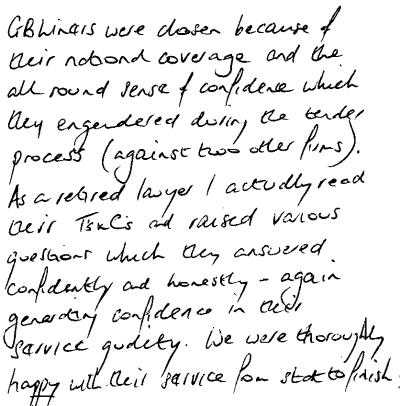 GBLiners were chosen because of
their national coverage and the
all round sense of confidence which
they engendered during the tender
process (against two other firms).
As a retired lawyer I actually read
their Ts&C's and raised various
questions which they answered
confidently and honestly - again
generating confidence in their
service quality. We were thoroughly
happy with their service from start to finish.